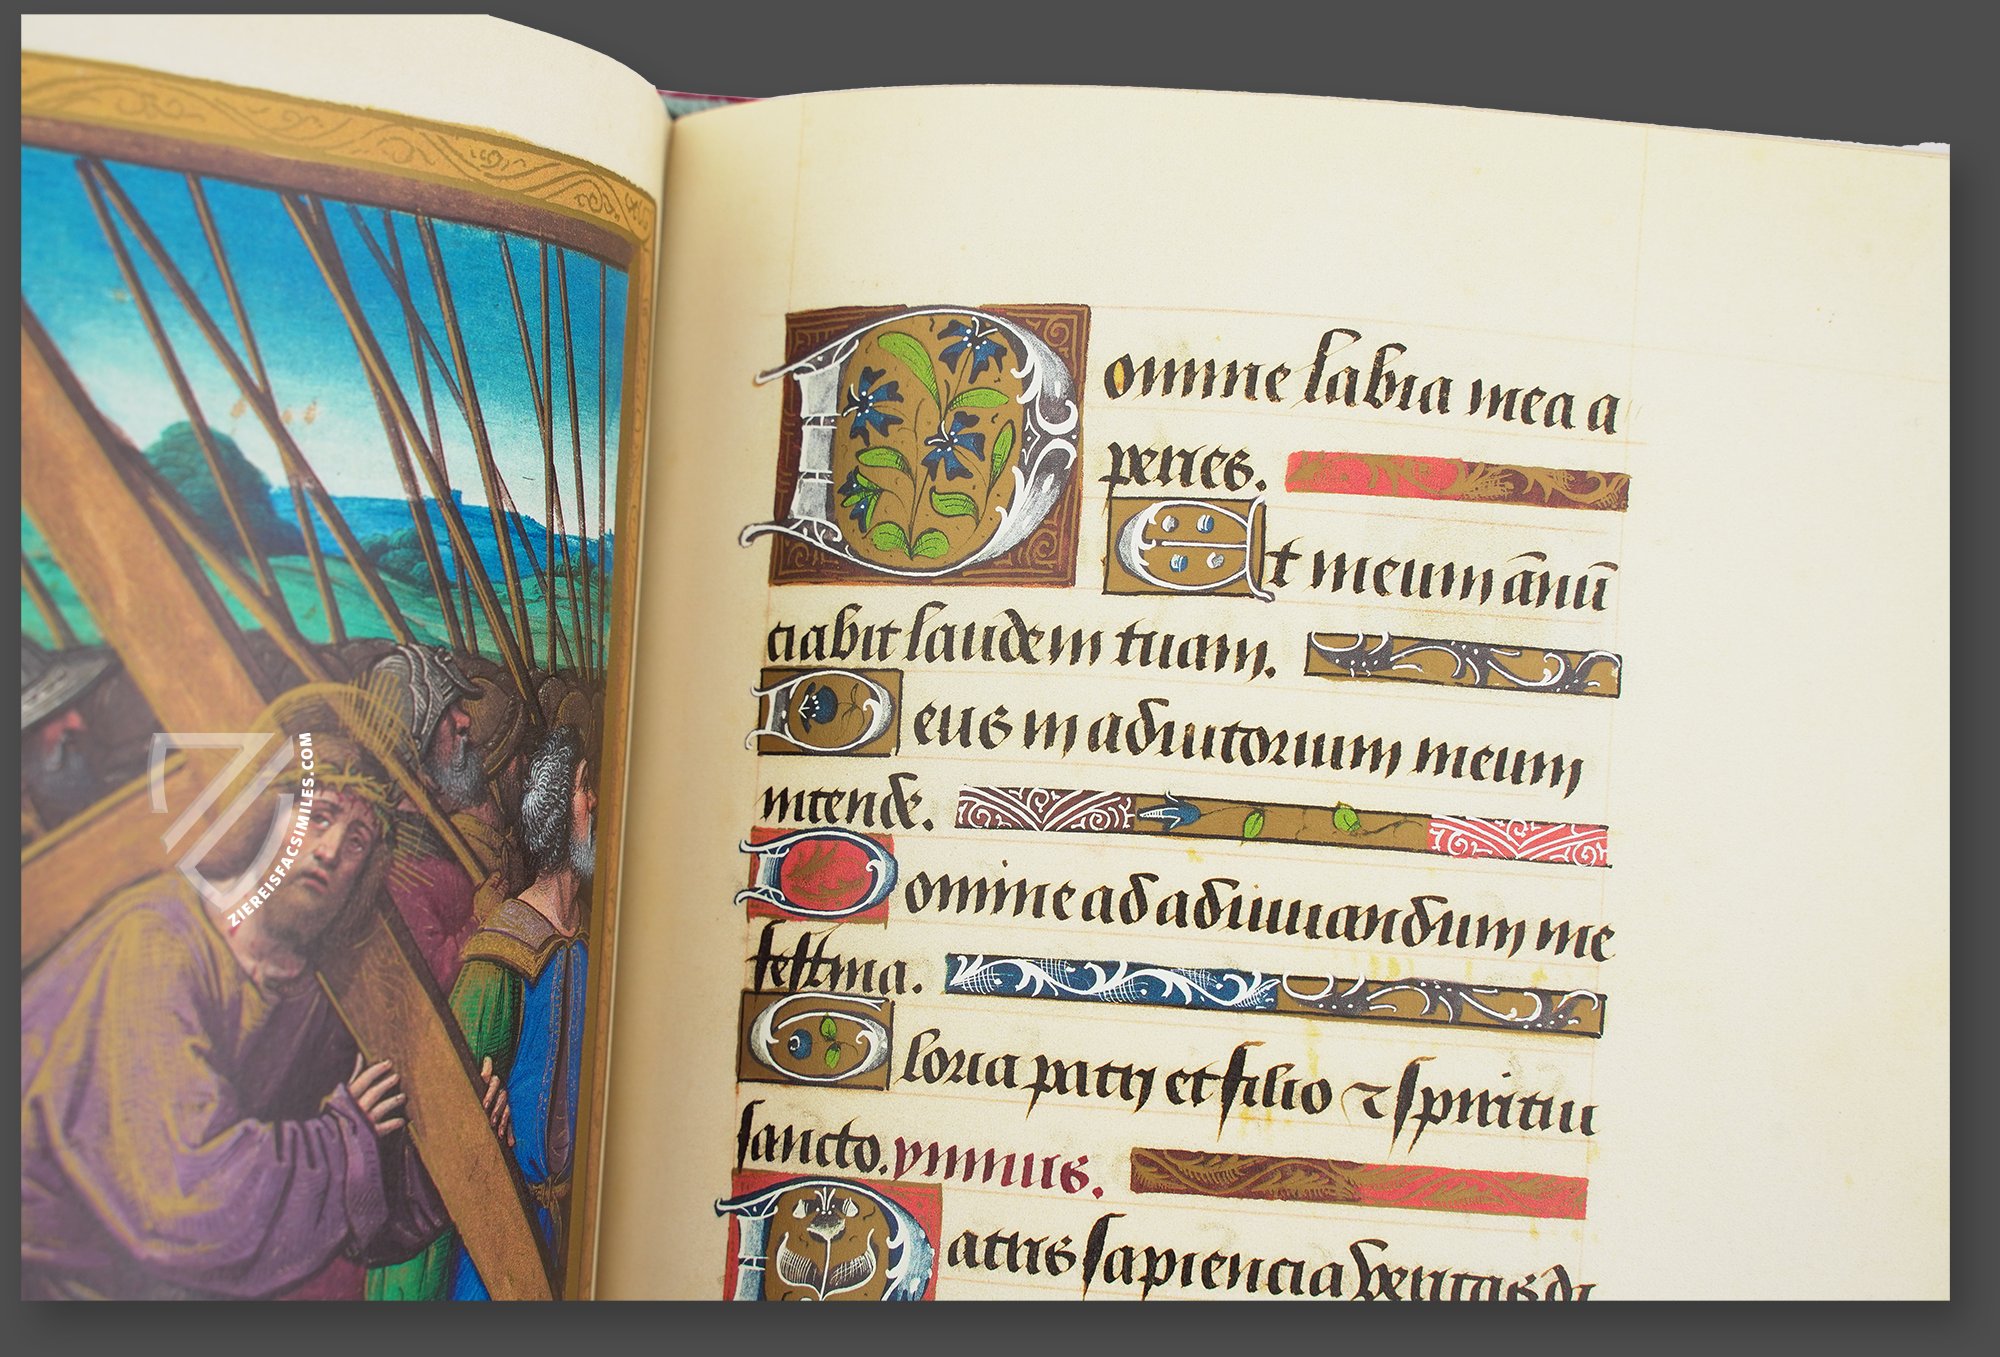 Domine labia mea a
peries.
Et meum ānū
ciabit laudem tuam.
Deus in adiutorium meum
intende.
Domine ad adiuuandum me
festina.
Gloria patri et filio ⁊ spiritui
sancto. ymnus.
Patris sapiencia veritas di
ZIEREISFACSIMILES.COM